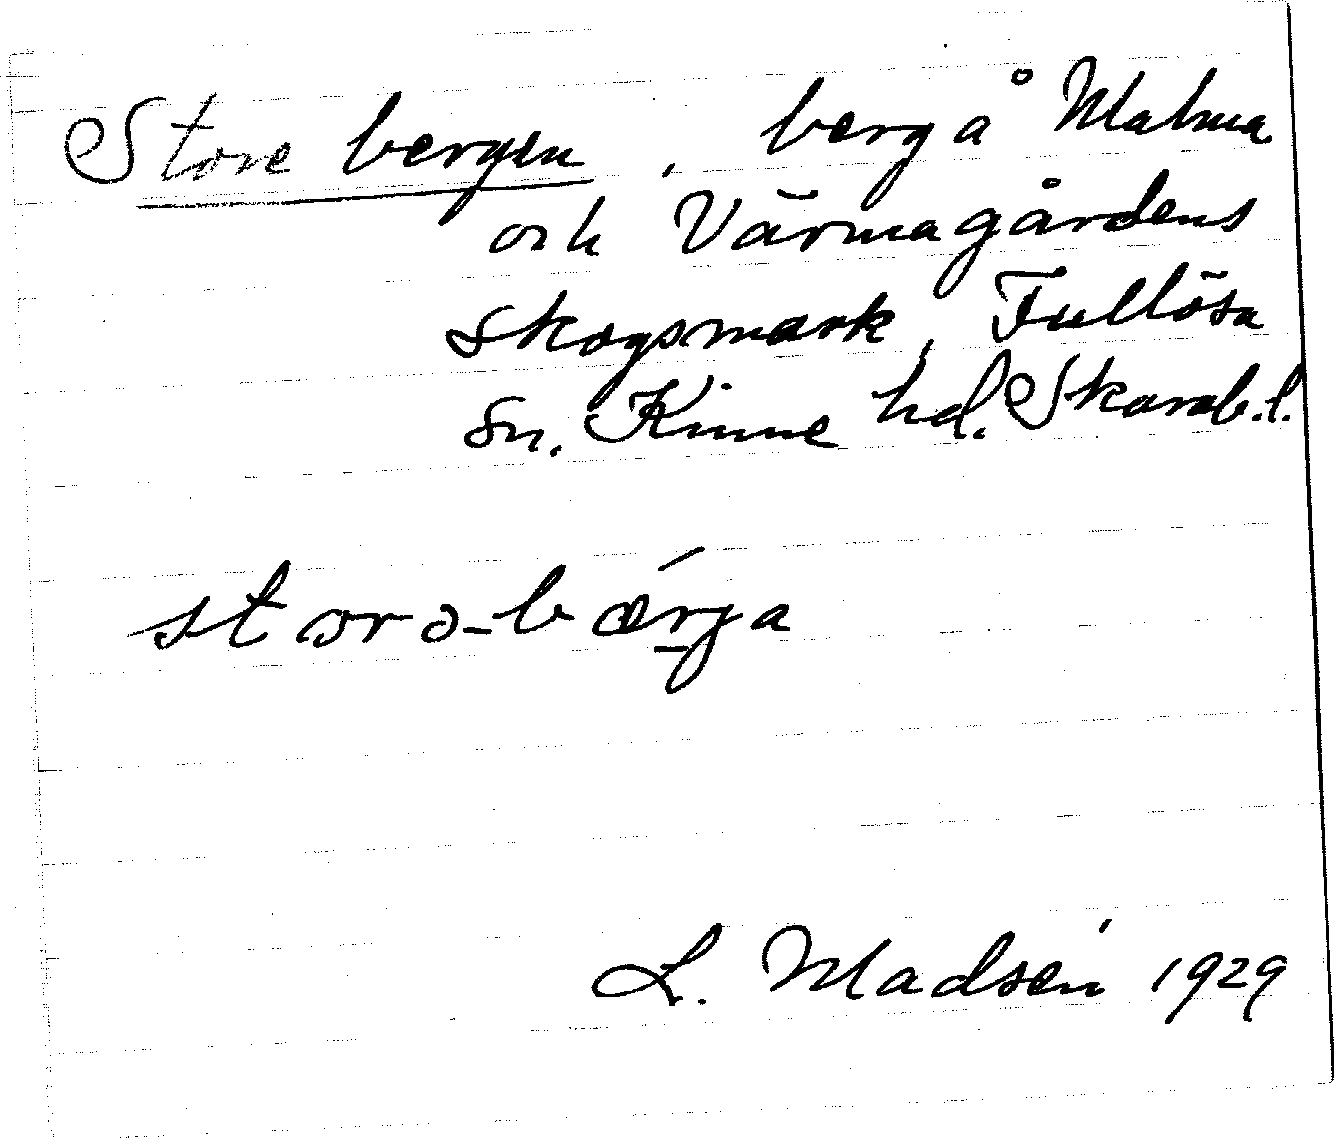 Store bergen, berg å Malma
och Värmagårdens
skogsmark, Fullösa
sn. Kinne hd. Skarab.l.
storə-bærja
L. Madsén 1929